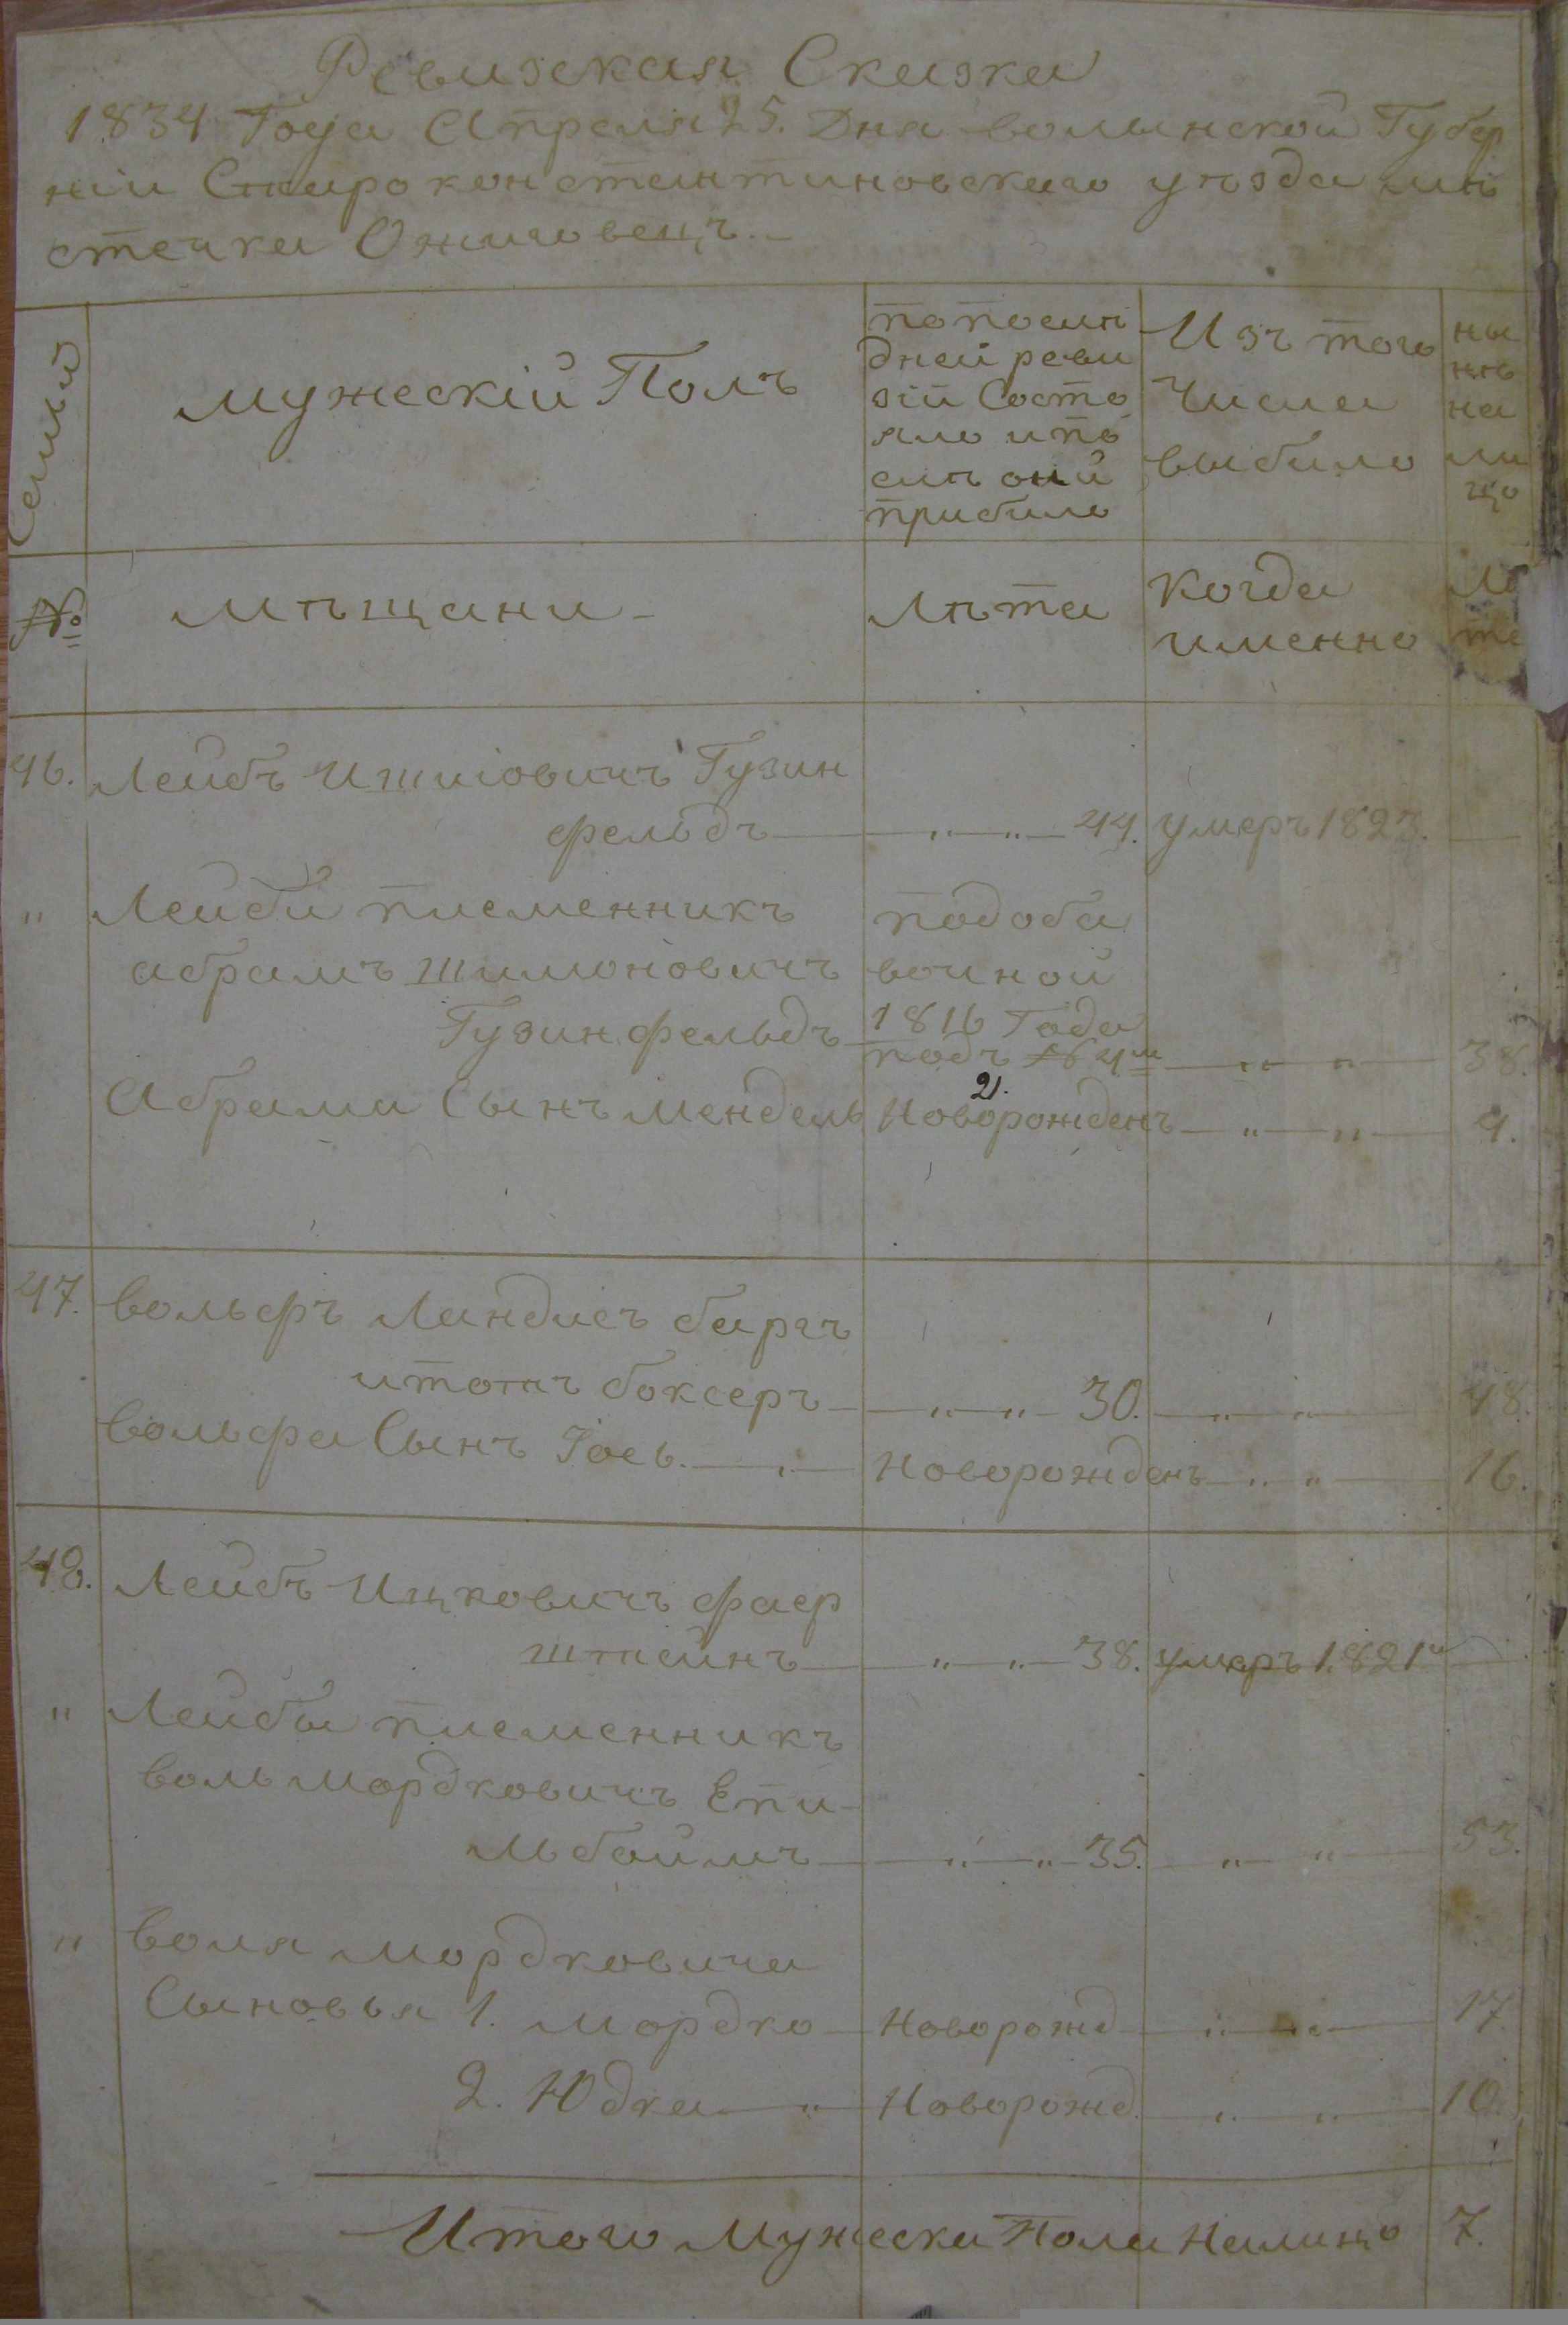 Ревизская Сказка
1834 Года Апреля 25. Дня волынской Губер
нiи Староконстантиновскаго уѣзда мѣ
стечка Ожиговецъ.
Семьи
мужескiй Полъ
по послѣ
дней реви
зiи Состо
яло и по
слѣ оной
прибило
Изъ того
Числа
выбило
ны
нѣ
на
ли
цо
№
мѣщани
Лѣта
когда
именно
Лѣ
та
46. Лейбъ Ишиiовичъ Гузин
фельдъ „ „ 44. умеръ 1823.
„ Лейби племенникъ подоба
абрамъ шимоновичъ вочной
Гузинфельдъ 1816 Года
подъ № 4м „ „ 38.
21.
Абрама Сынъ мендель Новорожденъ „ „ 9.
47. вольфъ Ландисъ барач
итожъ боксеръ „ „ 30. „ „ 48.
вольфа Сынъ Iось. „ Новорожденъ „ „ 16.
48. Лейбъ Ицковичъ фаер
штейнъ „ „ 38. умеръ 1821м
„ Лейбы племенникъ
воль мордковичъ Епи
льбоймъ „ „ 35. „ „ 53.
„ воля мордковича
Сыновья 1. мордко Новорожд „ „ 17.
2. Юдка „ Новорожд. „ „ 10.
Итого Мужеска Пола Налицо 7.